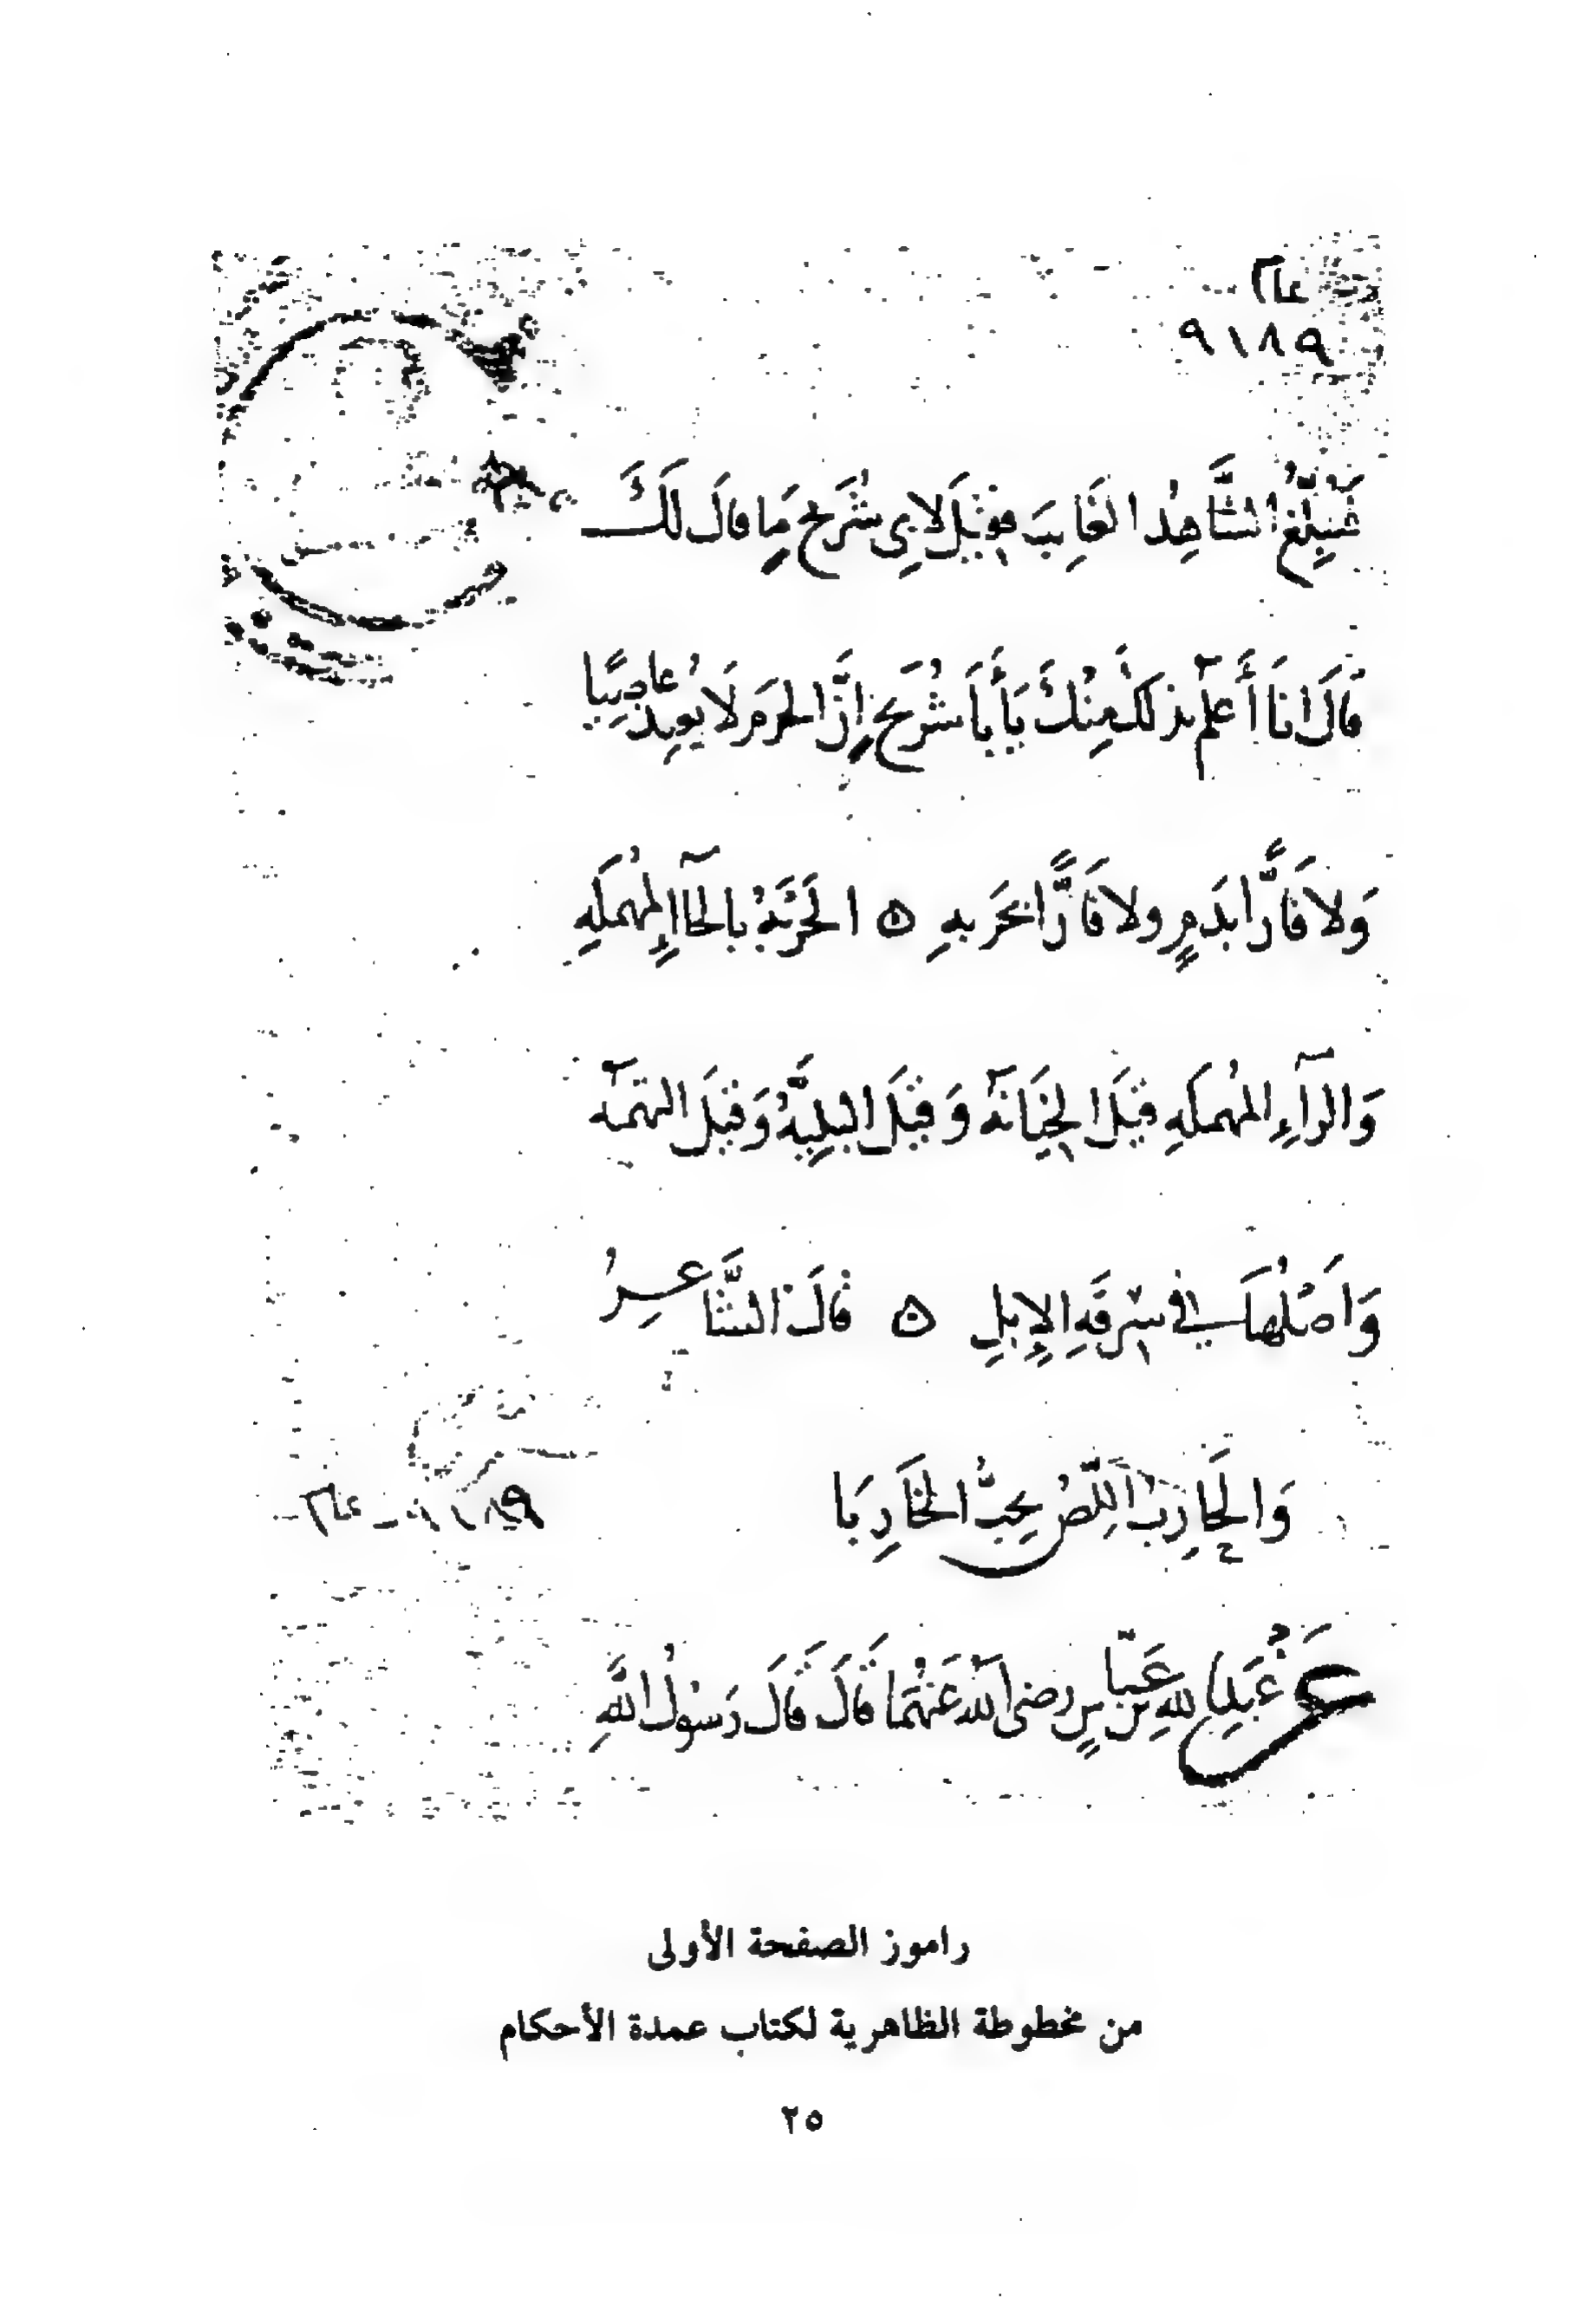 عام
٩١٨٩
فَلْيُبَلِّغِ الشَّاهِدُ الغَايِبَ فَقِيْلَ لِابِي شُرَيْحٍ مَا قالَ لَكَ
قالَ انَا أَعْلَمُ بذَلِكَ مِنْكَ يَأَبَا شُرَيْحٍ إنَّ الحَرَمَ لَا يُعِيدُ عاصِيًا
وَلا فَارًّا بِدَمٍ ولا فَارًّا بخَرَبهِ ٥ الخَرَبَةُ بالخآءِ المُهمَلَهِ
وَالرآءِ المُهمَلَهِ قِيْلَ الخِيَانَهُ وَقِيْلَ البَلِيَّهُ وَقِيْلَ التهَمَهُ
وَاَصْلُهَا في سَرِقَهِ الإِبِلِ ٥ قالَ الشَّاعِرُ
وَالخَارِبُ اللِّصُ يحِبُّ الخَارِبَا
٩١٨٩ - عام
عَنْ عَبدِ اللهِ بن عَبَّاسٍ رضى اللهُ عَنْهُمَا قَالَ قَالَ رَسُوْلُ اللَّهِ
راموز الصفحة الأولى
من مخطوطة الظاهرية لكتاب عمدة الأحكام
٢٥